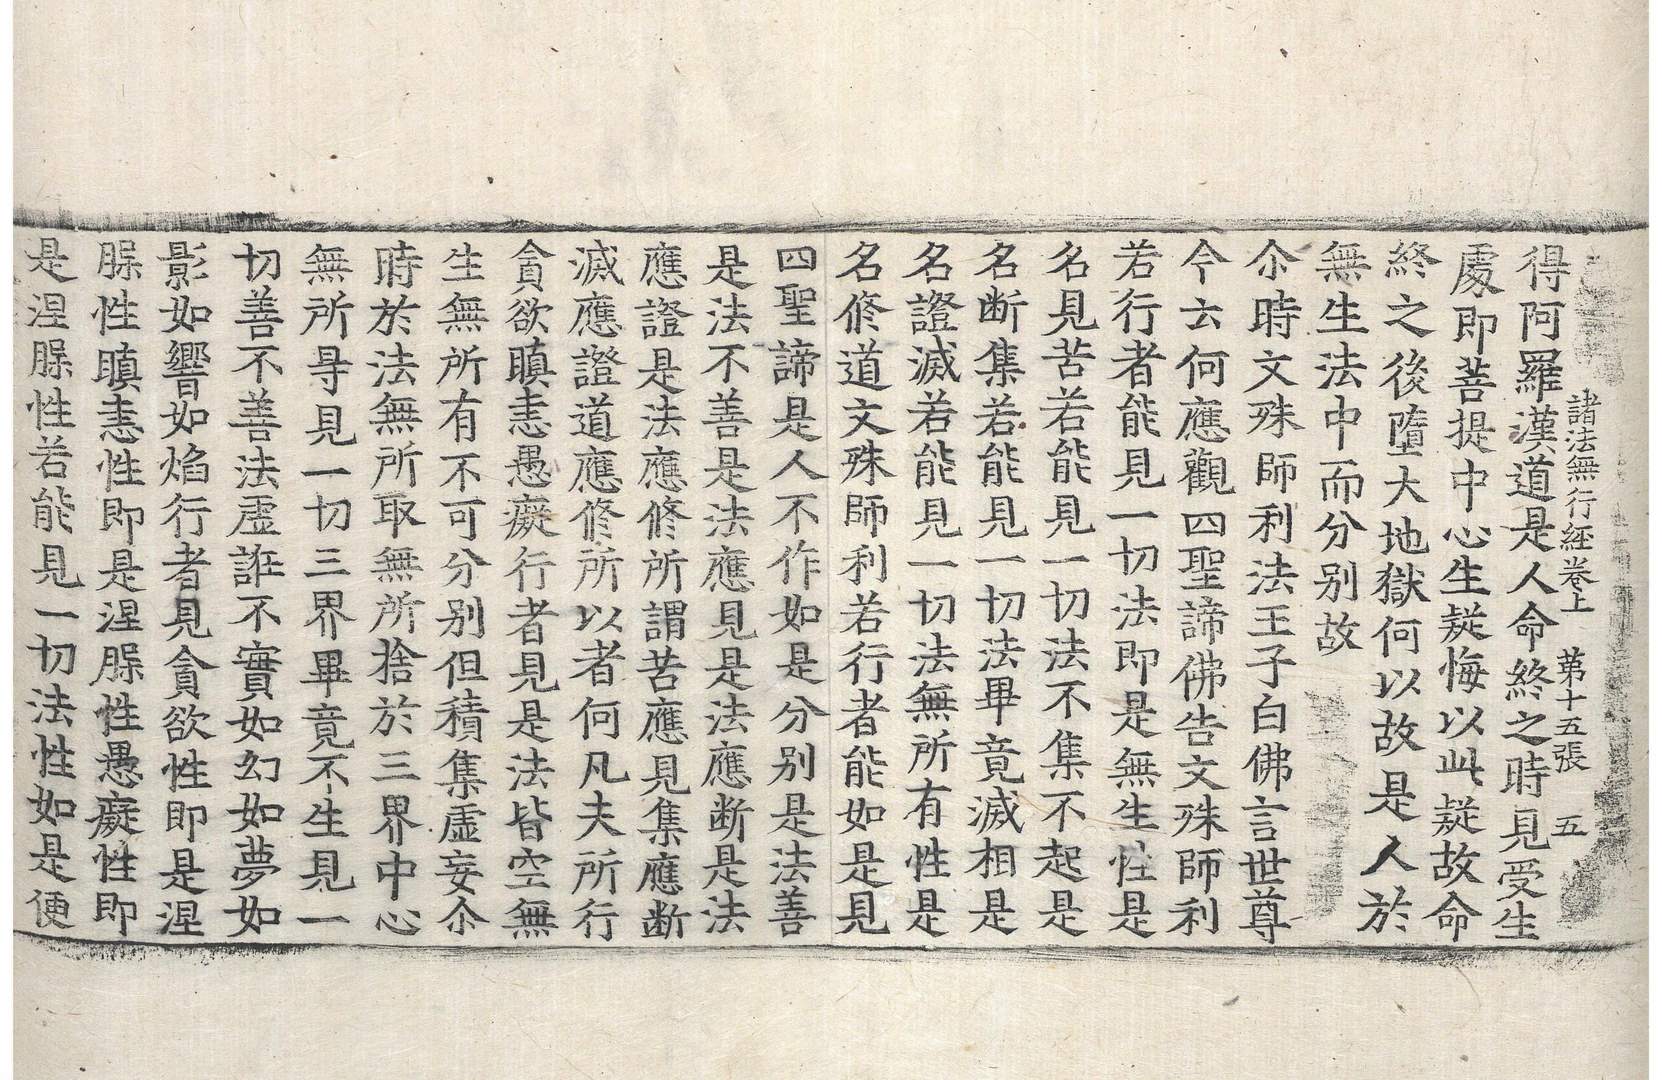 諸法無行經卷上　第十五張　五
得阿羅漢道是人命終之時見受生
處即菩提中心生疑悔以此疑故命
終之後墮大地獄何以故是人於
無生法中而分別故
尒時文殊師利法王子白佛言世尊
今云何應觀四聖諦佛告文殊師利
若行者能見一切法即是無生性是
名見苦若能見一切法不集不起是
名断集若能見一切法畢竟滅相是
名證滅若能見一切法無所有性是
名修道文殊師利若行者能如是見
四聖諦是人不作如是分別是法善
是法不善是法應見是法應断是法
應證是法應修所謂苦應見集應断
滅應證道應修所以者何凡夫所行
貪欲瞋恚愚癡行者見是法皆空無
生無所有不可分別但積集虛妄尒
時於法無所取無所捨於三界中心
無所㝵見一切三界畢竟不生見一
切善不善法虛誑不實如幻如夢如
影如響如焰行者見貪欲性即是涅
槃性瞋恚性即是涅槃性愚癡性即
是涅槃性若能見一切法性如是便